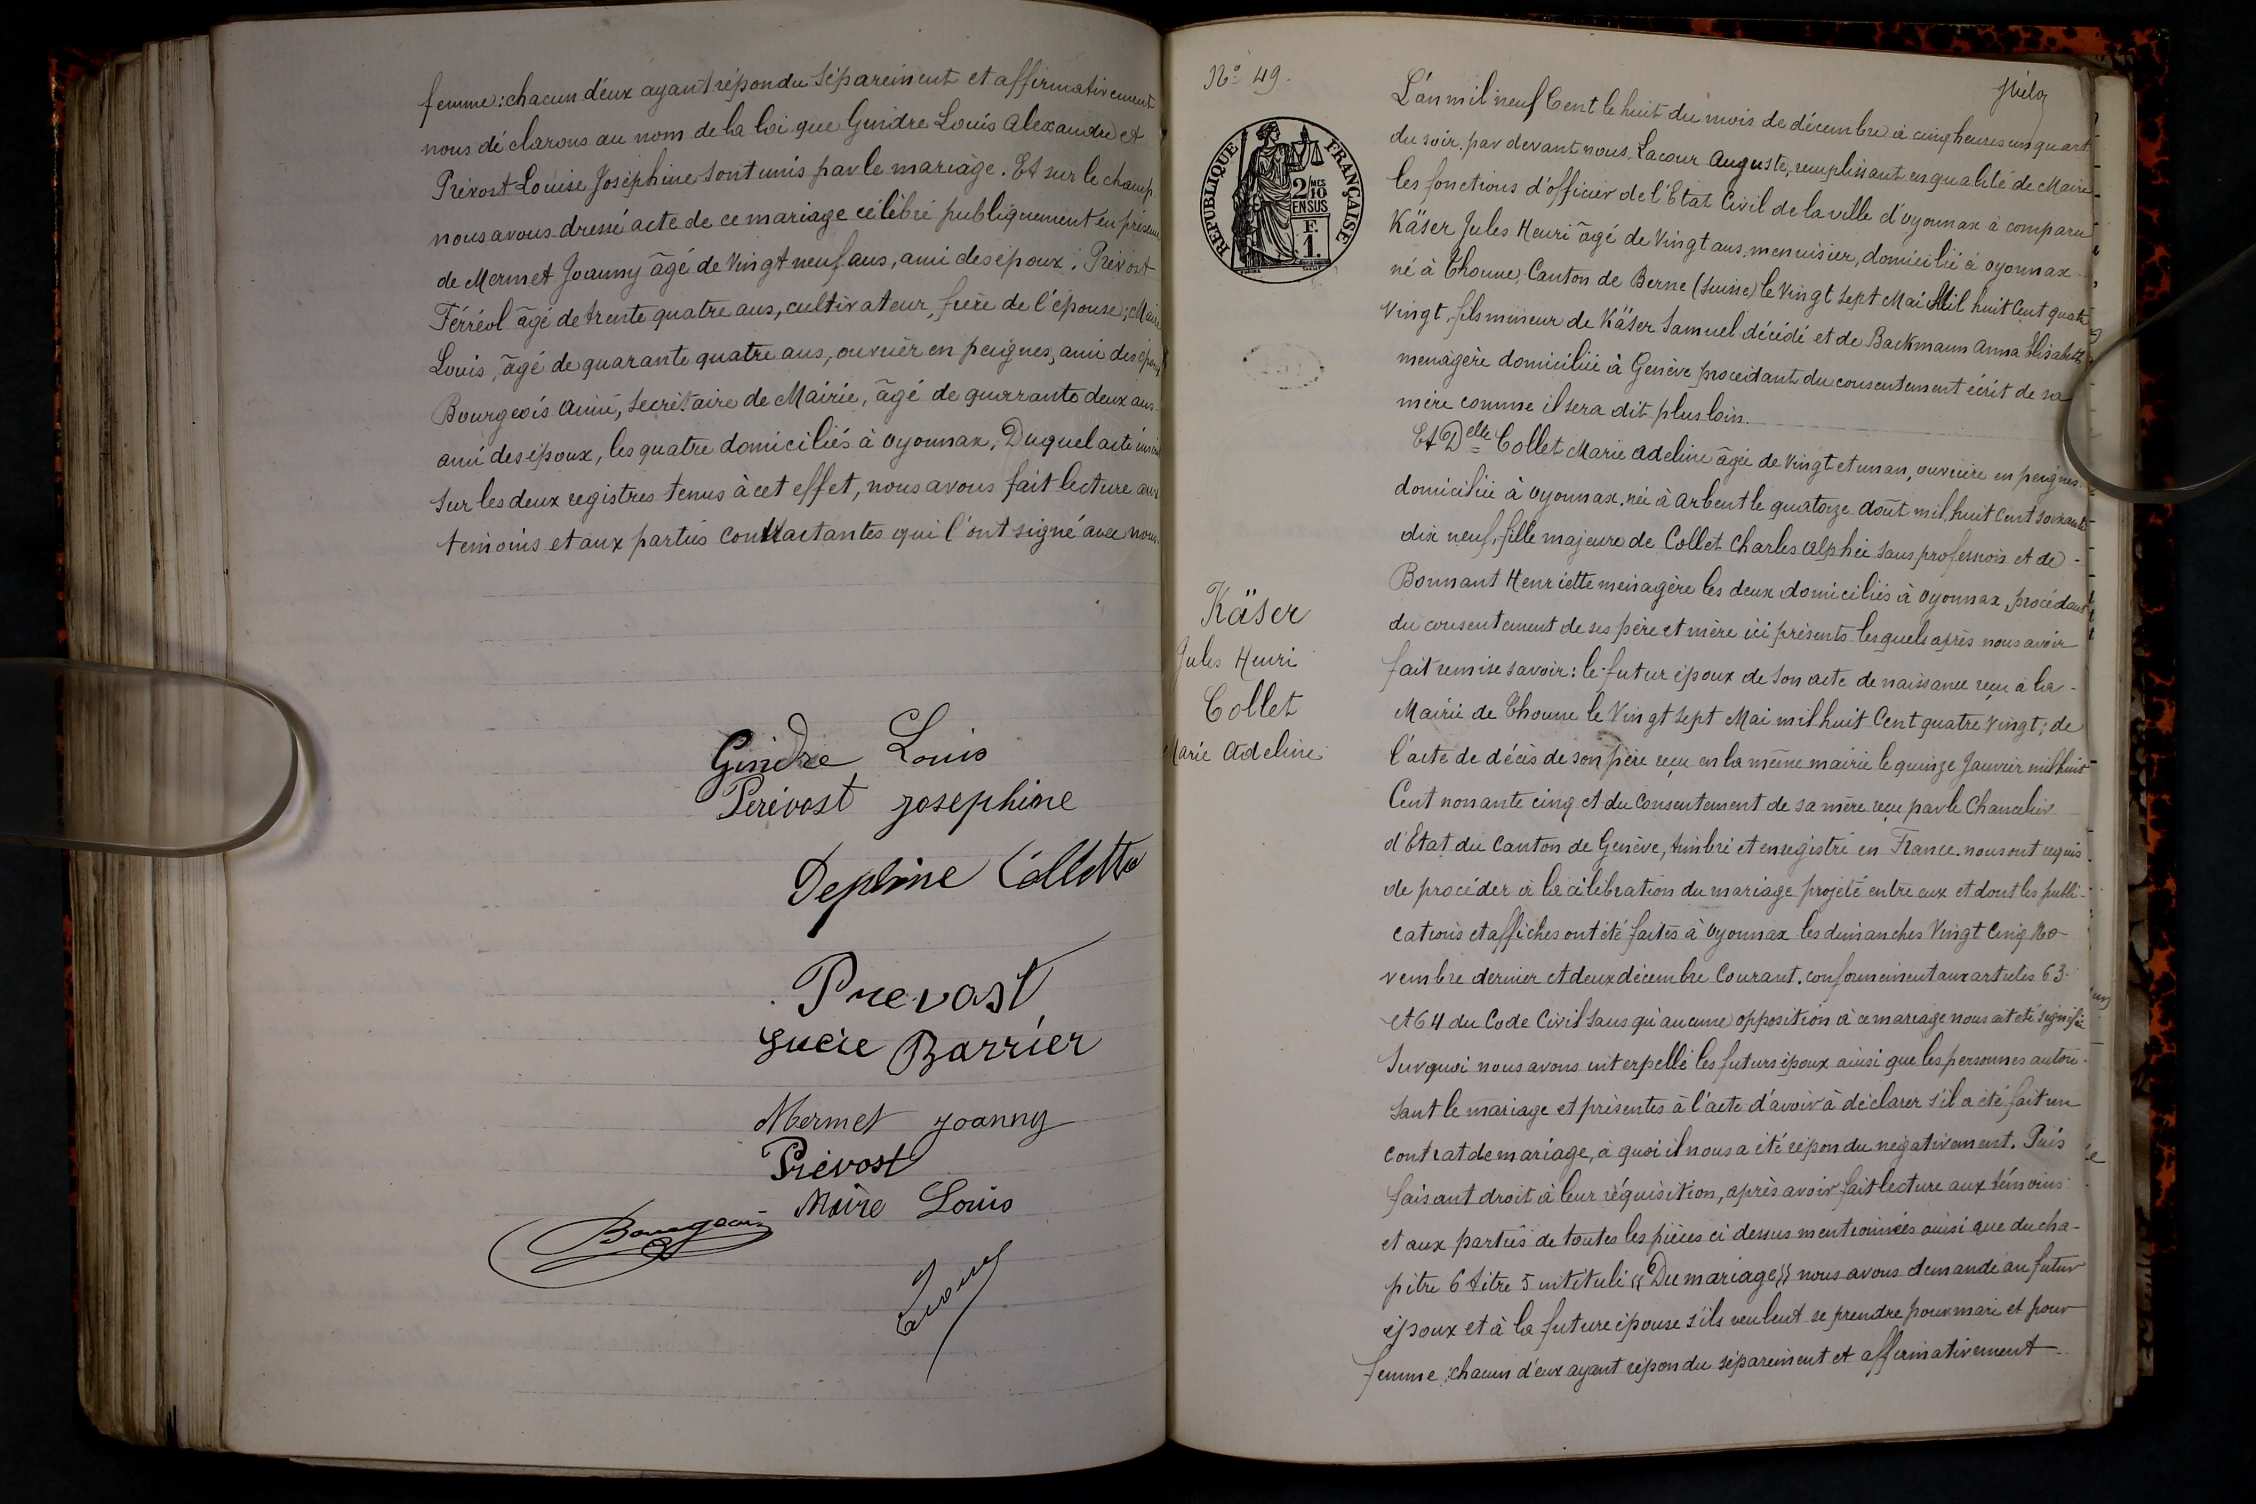 femme: chacun d'eux ayant répondu séparément et affirmativement
nous déclarons au nom de la loi que Gindre Louis Alexandre et
Prévost Louise Joséphine sont unis par le mariage. Et sur le champ
nous avons dressé acte de ce mariage célébré publiquement en présence
de Mermet Joanny âgé de Vingt neuf ans, ami des époux; Prévost
Férréol âgé de trente quatre ans, cultivateur, frère de l'épouse; Maire
Louis, âgé de quarante quatre ans, ouvrier en peignes, ami des époux
Bourgeois Aimé, Secrétaire de Mairie, âgé de quarante deux ans
ami des époux, les quatre domiciliés à Oyonnax. Duquel acte inscrit
sur les deux registres tenus à cet effet, nous avons fait lecture aux
temoins et aux parties contractantes qui l'ont signé avec nous.
Gindre Louis
Perévost Josephine
Prevost
Barrier
Mermet Joanny
Prévost
Maire Louis
Bourgeois
No 49.
REPUBLIQUE FRANÇAISE
2/10 MES
EN SUS
F.
1.
Käser
Jules Henri
Collet
Marie Adeline
L'an mil neuf Cent le huit du mois de décembre à cinq heures un quart
du soir, par devant nous Lacour Auguste, remplissant en qualité de Maire
les fonctions d'officier de l'Etat Civil de la ville d'Oyonnax à comparu
Käser Jules Henri âgé de Vingt ans, menuisier, domicilié à Oyonnax
né à Thoune, Canton de Berne (Suisse) le Vingt Sept Mai Mil huit Cent quatre
Vingt, fils mineur de Käser Samuel décédé et de Backmann Anna Elisabeth
menagère domiciliée à Genève procédant du consentement écrit de sa
mère comme il sera dit plus loin.
Et Delle Collet Marie Adeline âgée de vingt et un an, ouvrière en peignes
domiciliée à Oyonnax, née à Arbent le quatorze Août mil huit Cent soixante
dix neuf, fille majeure de Collet Charles Alphée sans profession et de
Bonnant Henriette ménagère les deux domiciliés à Oyonnax, procédant
du consentement de ses père et mère ici présents lesquels après nous avoir
fait remise savoir: le futur époux de son acte de naissance reçu à la
Mairie de Thoune le Vingt Sept Mai mil huit Cent quatre vingt; de
l'acte de décès de son père reçu en la même mairie le quinze Janvier mil huit
Cent nonante cinq et du Consentement de sa mère reçu par le Chancelier
d'Etat du Canton de Genève, timbré et enregistré en France. nous ont requis
de procéder à la célébration du mariage projeté entre eux et dont les publi-
cations et affiches ont été faites à Oyonnax les dimanches Vingt Cinq No-
vembre dernier et deux décembre Courant. conformément aux articles 63
et 64 du Code Civil Sans qu'aucune opposition à ce mariage nous ait été signifiée
Sur quoi nous avons interpellé les futurs époux ainsi que les personnes autori-
sant le mariage et présentes à l'acte d'avoir à déclarer s'il a été fait un
contrat de mariage, à quoi il nous a été répondu négativement. Puis
faisant droit à leur réquisition, après avoir fait lecture aux témoins
et aux parties de toutes les pièces ci dessus mentionnées ainsi que du cha-
pitre 6 titre 5 intitulé « Du mariage » nous avons demandé au futur
époux et à la future épouse s'ils veulent se prendre pour mari et pour
femme; chacun d'eux ayant répondu séparément et affirmativement